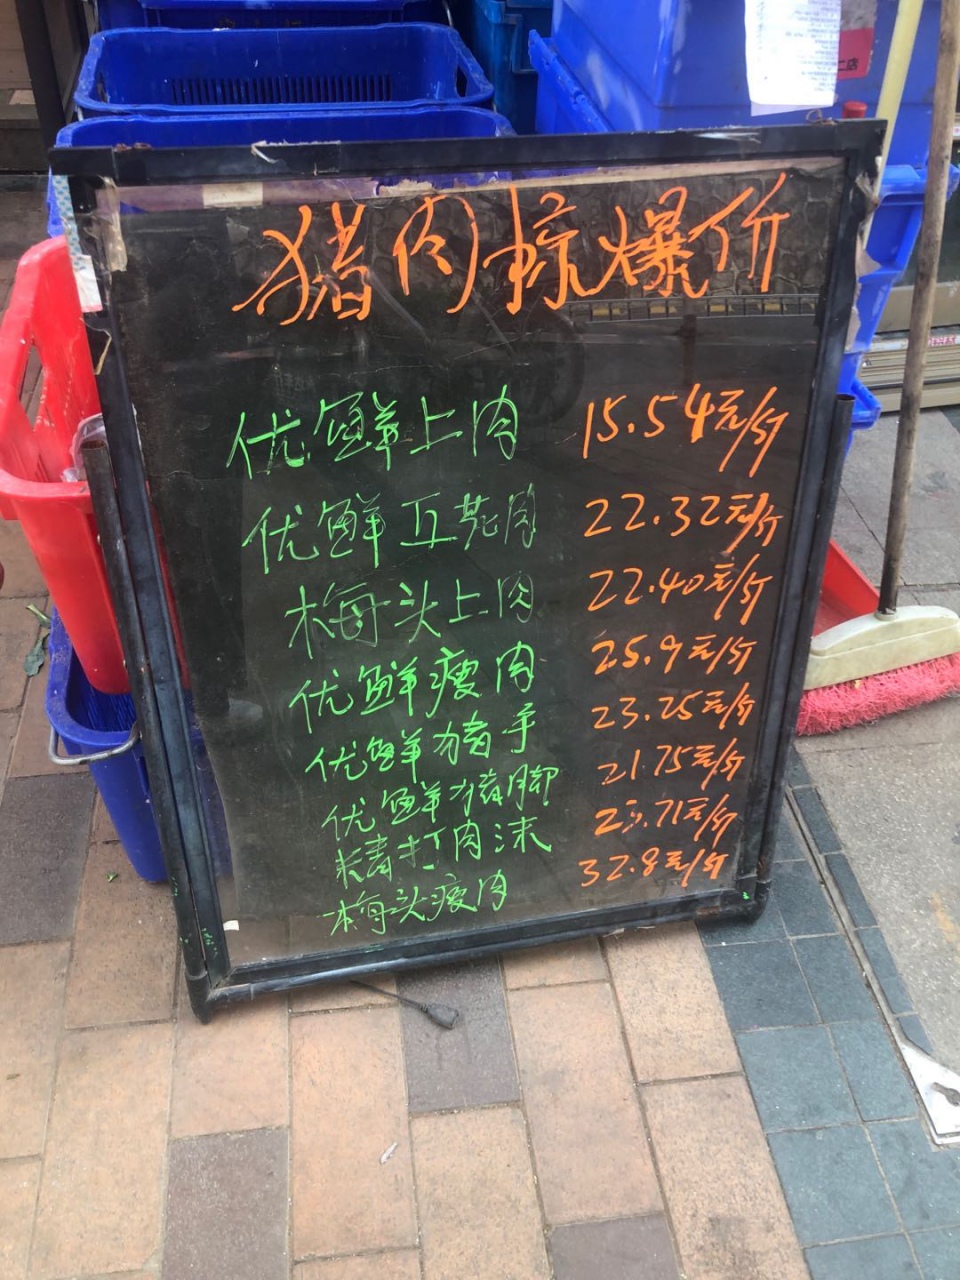 猪肉惊爆价
优鲜上肉 15.54元/斤
优鲜五花肉 22.32元/斤
梅头上肉 22.40元/斤
优鲜瘦肉 25.9元/斤
优鲜猪手 23.25元/斤
优鲜猪脚 21.75元/斤
打肉沫 25.71元/斤
梅头瘦肉 32.8元/斤
二店